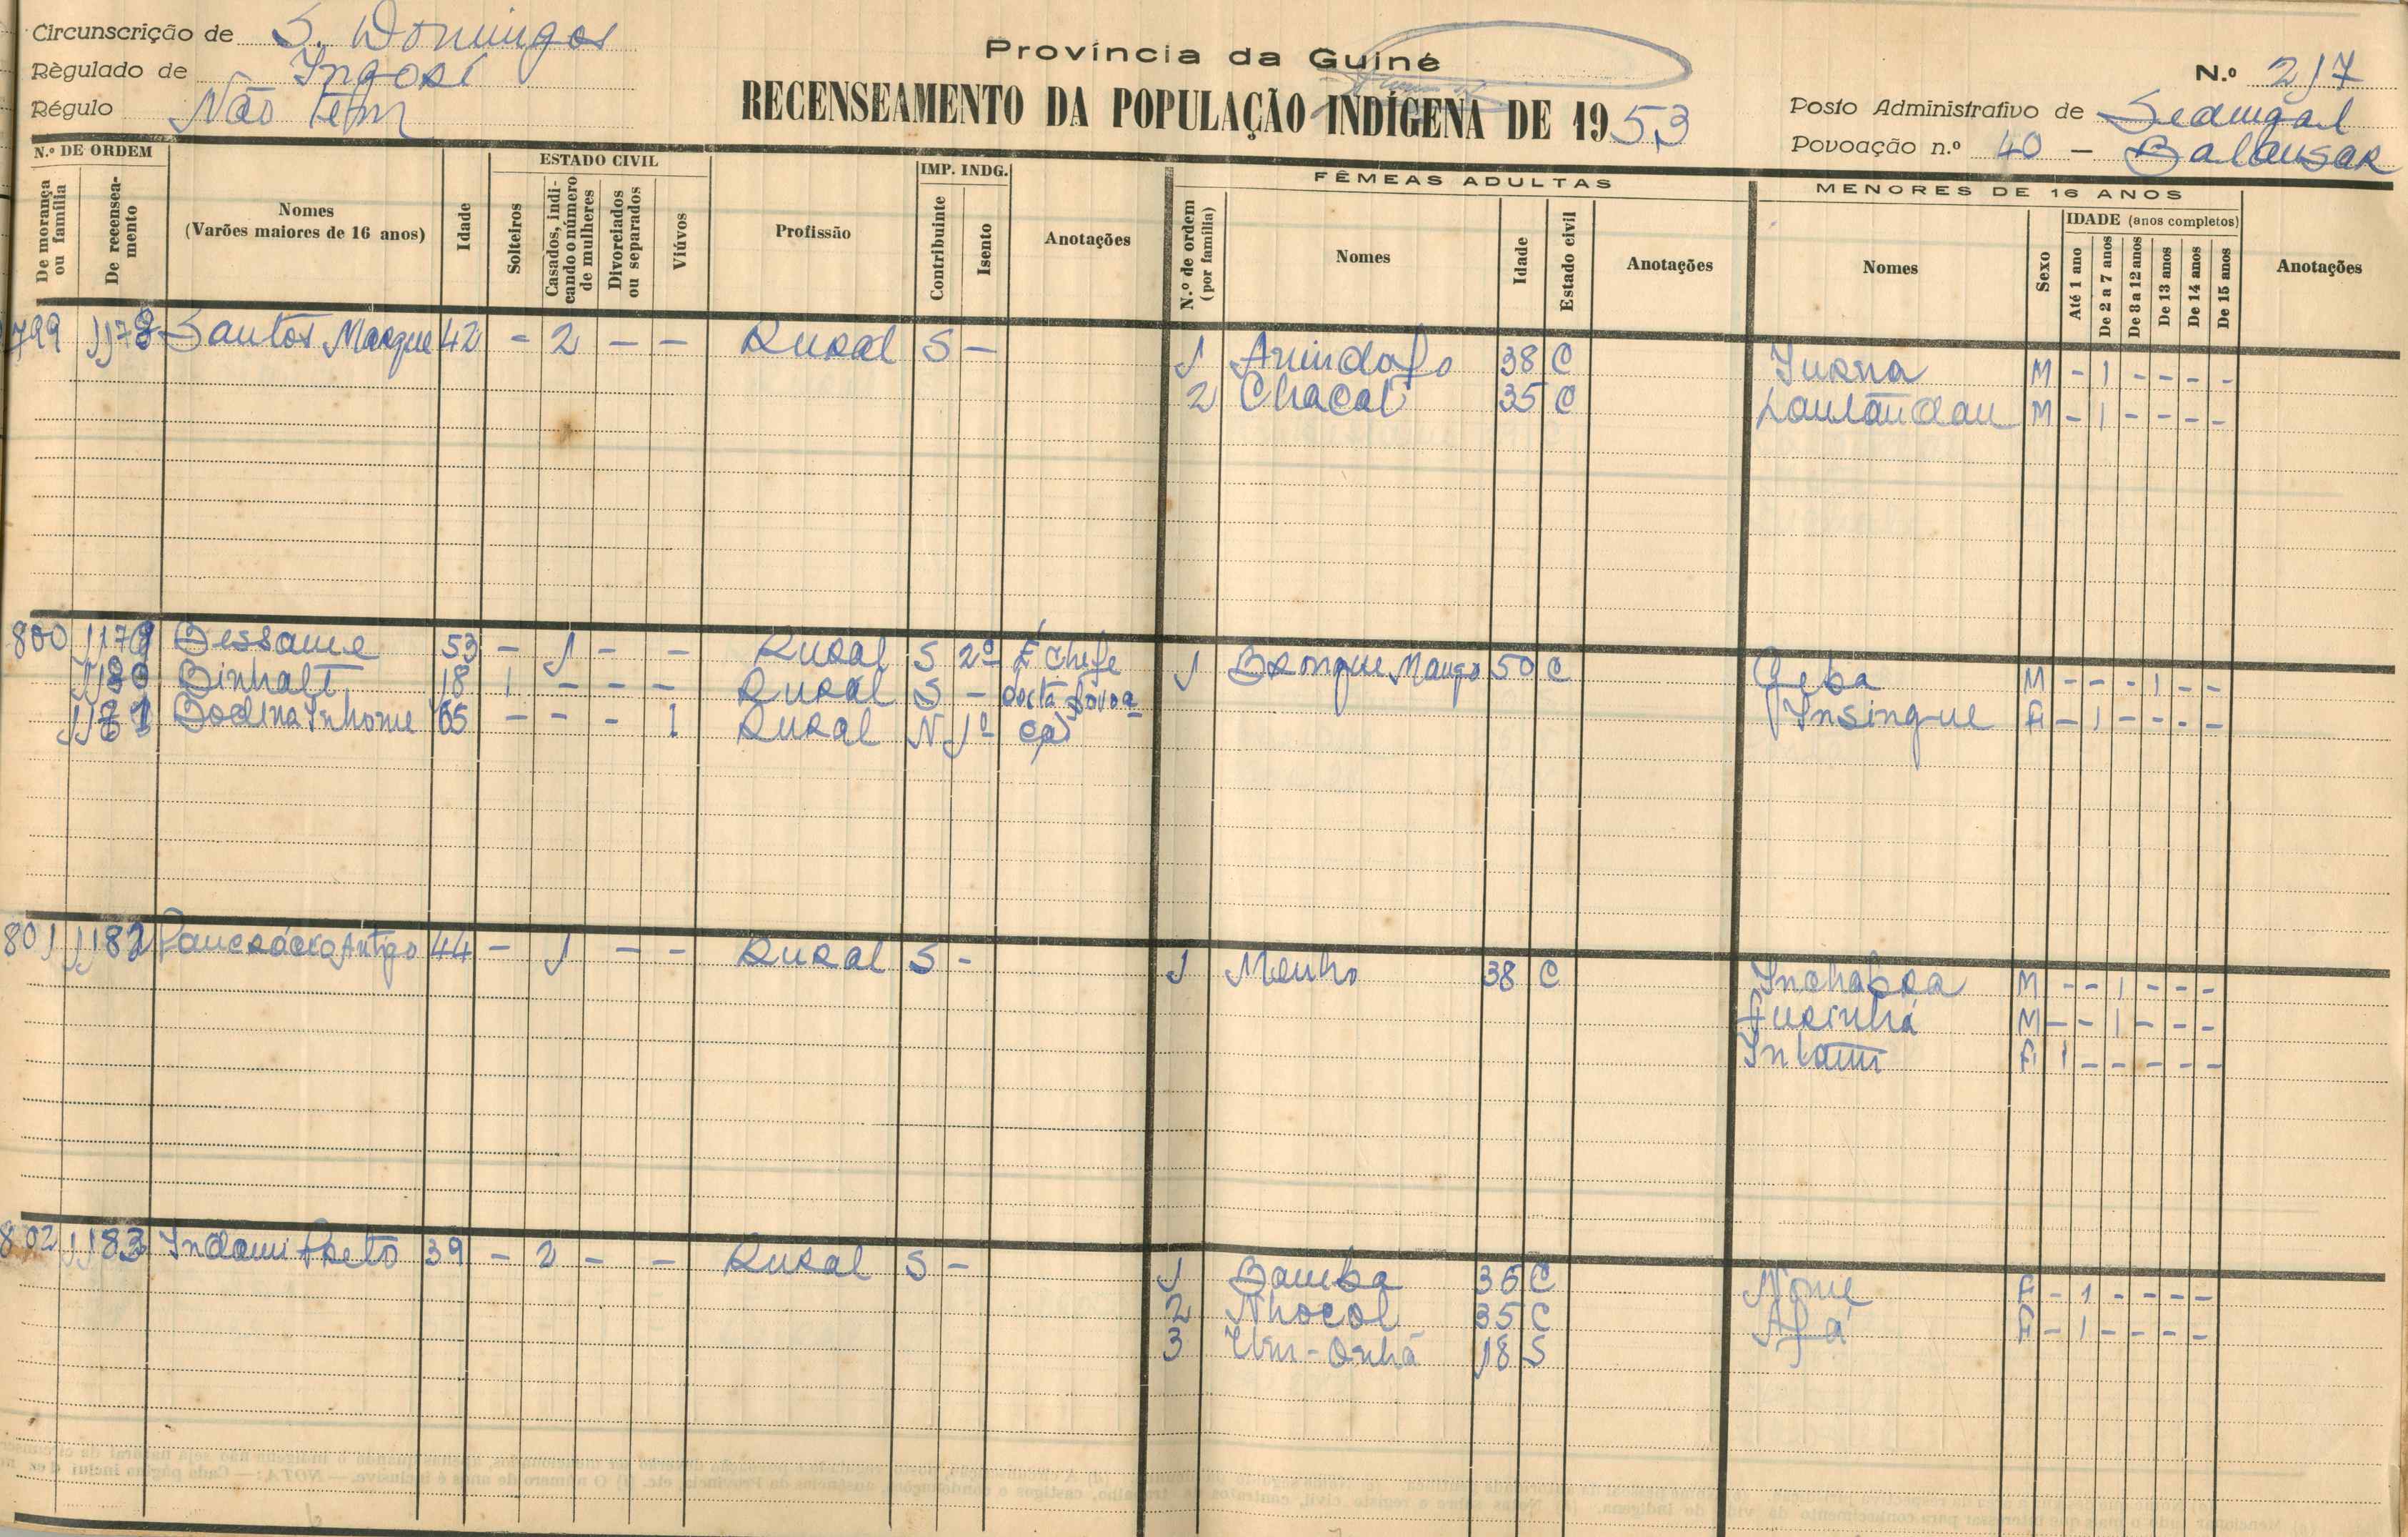 Circunscrição de S. Domingos
Règulado de Ingoré
Régulo Não tem
Província da Guiné
RECENSEAMENTO DA POPULAÇÃO INDÍGENA DE 1953
N.º 217
Posto Administrativo de Sedengal
Povoação n.º 40 - Balansar
N.º DE ORDEM
De morança ou família
De recenseamento
Nomes
(Varões maiores de 16 anos)
Idade
ESTADO CIVIL
Solteiros
Casados, indicando o número de mulheres
Divorciados ou separados
Viúvos
Profissão
IMP. INDG.
Contribuinte
Isento
Anotações
FÊMEAS ADULTAS
N.º de ordem (por família)
Nomes
Idade
Estado civil
Anotações
MENORES DE 16 ANOS
Nomes
Sexo
IDADE (anos completos)
Até 1 ano
De 2 a 7 anos
De 8 a 12 anos
De 13 anos
De 14 anos
De 15 anos
Anotações
799 1178 Santos Marque 42 - 2 - - Rural S -
1 Anindafo 38 C Jurna M - 1 - - - -
2 Chacal 35 C M - 1 - - - -
800 1179 Bessame 53 - 1 - - Rural S 2º É chefe
1180 Binhalt 18 1 - - - Rural S - desta Povoa
1181 Bodena Inhome 65 - - - 1 Rural N 1º ção
1 Bronque Mango 50 C Geba M - - - 1 - -
Insingue F - 1 - - - -
801 1182 44 - 1 - - Rural S -
1 Menho 38 C Inchabra M - - 1 - - -
Jurinhá M - - 1 - - -
Intami F 1 - - - - -
802 1183 Indami Preto 39 - 2 - - Rural S -
1 Bamba 36 C Nome F - 1 - - - -
2 Nhocol 35 C Afá F - 1 - - - -
3 18 S